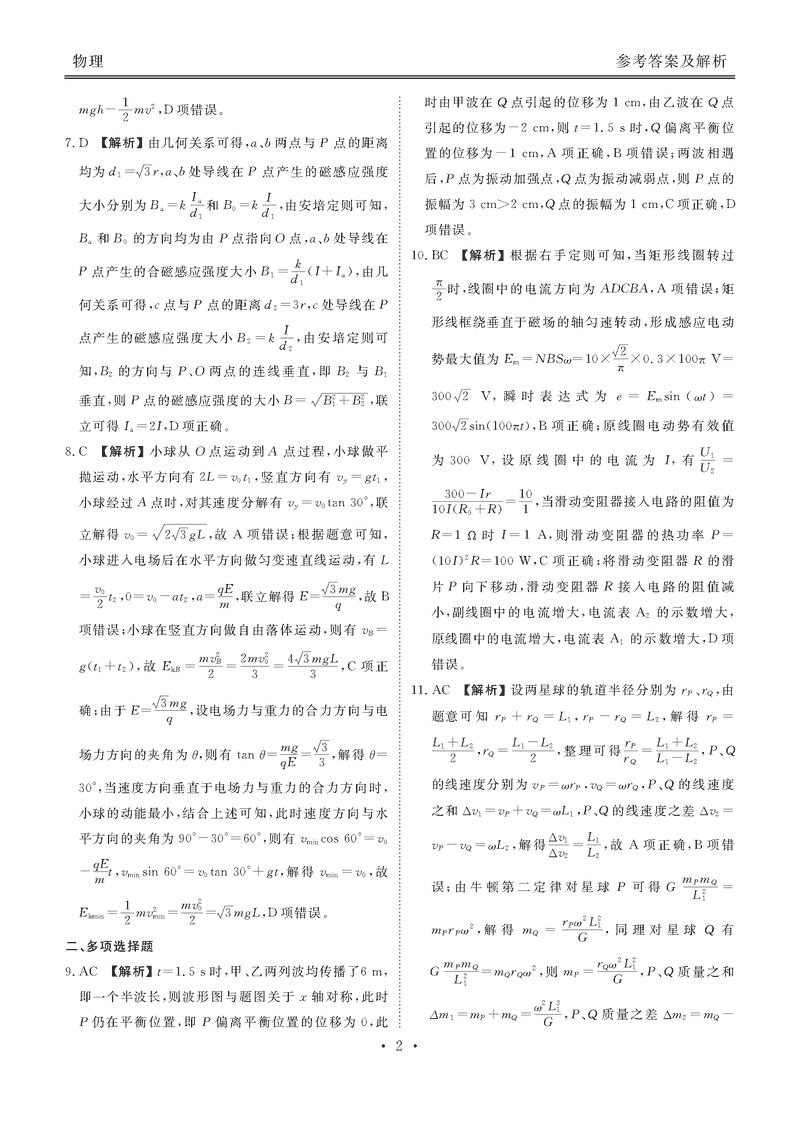 物理
参考答案及解析
mgh-\frac{1}{2}mv²,D项错误。
7.D 【解析】由几何关系可得,a、b两点与P点的距离
均为d₁=√3r,a、b处导线在P点产生的磁感应强度
大小分别为Bₐ=k\frac{Iₐ}{d₁}和B₀=k\frac{I}{d₁},由安培定则可知,
Bₐ和B₀的方向均为由P点指向O点,a、b处导线在
P点产生的合磁感应强度大小B₁=\frac{k}{d₁}(I+Iₐ),由几
何关系可得,c点与P点的距离d₂=3r,c处导线在P
点产生的磁感应强度大小B₂=k\frac{I}{d₂},由安培定则可
知,B₂的方向与P、O两点的连线垂直,即B₂与B₁
垂直,则P点的磁感应强度的大小B=\sqrt{B₁²+B₂²},联
立可得Iₐ=2I,D项正确。
8.C 【解析】小球从O点运动到A点过程,小球做平
抛运动,水平方向有2L=v₀t₁,竖直方向有v_y=gt₁,
小球经过A点时,对其速度分解有v_y=v₀tan 30°,联
立解得v₀=\sqrt{2√3gL},故A项错误;根据题意可知,
小球进入电场后在水平方向做匀变速直线运动,有L
=\frac{v₀}{2}t₂,0=v₀-at₂,a=\frac{qE}{m},联立解得E=\frac{√3mg}{q},故B
项错误;小球在竖直方向做自由落体运动,则有v_B=
g(t₁+t₂),故E_{kB}=\frac{mv_B²}{2}=\frac{2mv₀²}{3}=\frac{4√3mgL}{3},C项正
确;由于E=\frac{√3mg}{q},设电场力与重力的合力方向与电
场力方向的夹角为θ,则有tan θ=\frac{mg}{qE}=\frac{√3}{3},解得θ=
30°,当速度方向垂直于电场力与重力的合力方向时,
小球的动能最小,结合上述可知,此时速度方向与水
平方向的夹角为90°-30°=60°,则有v_{min}cos 60°=v₀
-\frac{qE}{m}t,v_{min}sin 60°=v₀tan 30°+gt,解得v_{min}=v₀,故
E_{kmin}=\frac{1}{2}mv_{min}²=\frac{mv₀²}{2}=√3mgL,D项错误。
二、多项选择题
9.AC 【解析】t=1.5 s时,甲、乙两列波均传播了6 m,
即一个半波长,则波形图与题图关于x轴对称,此时
P仍在平衡位置,即P偏离平衡位置的位移为0,此
时由甲波在Q点引起的位移为1 cm,由乙波在Q点
引起的位移为-2 cm,则t=1.5 s时,Q偏离平衡位
置的位移为-1 cm,A项正确,B项错误;两波相遇
后,P点为振动加强点,Q点为振动减弱点,则P点的
振幅为3 cm>2 cm,Q点的振幅为1 cm,C项正确,D
项错误。
10.BC 【解析】根据右手定则可知,当矩形线圈转过
\frac{π}{2}时,线圈中的电流方向为ADCBA,A项错误;矩
形线框绕垂直于磁场的轴匀速转动,形成感应电动
势最大值为E_m=NBSω=10×\frac{√2}{π}×0.3×100π V=
300√2 V,瞬时表达式为e=E_m sin(ωt)=
300√2sin(100πt),B项正确;原线圈电动势有效值
为300 V,设原线圈中的电流为I,有\frac{U₁}{U₂}=
\frac{300-Ir}{10I(R₀+R)}=\frac{10}{1},当滑动变阻器接入电路的阻值为
R=1 Ω时I=1 A,则滑动变阻器的热功率P=
(10I)²R=100 W,C项正确;将滑动变阻器R的滑
片P向下移动,滑动变阻器R接入电路的阻值减
小,副线圈中的电流增大,电流表A₂的示数增大,
原线圈中的电流增大,电流表A₁的示数增大,D项
错误。
11.AC 【解析】设两星球的轨道半径分别为r_P、r_Q,由
题意可知r_P+r_Q=L₁,r_P-r_Q=L₂,解得r_P=
\frac{L₁+L₂}{2},r_Q=\frac{L₁-L₂}{2},整理可得\frac{r_P}{r_Q}=\frac{L₁+L₂}{L₁-L₂},P、Q
的线速度分别为v_P=ωr_P,v_Q=ωr_Q,P、Q的线速度
之和Δv₁=v_P+v_Q=ωL₁,P、Q的线速度之差Δv₂=
v_P-v_Q=ωL₂,解得\frac{Δv₁}{Δv₂}=\frac{L₁}{L₂},故A项正确,B项错
误;由牛顿第二定律对星球P可得G\frac{m_Pm_Q}{L₁²}=
m_Pr_Pω²,解得m_Q=\frac{r_Pω²L₁²}{G},同理对星球Q有
G\frac{m_Pm_Q}{L₁²}=m_Qr_Qω²,则m_P=\frac{r_Qω²L₁²}{G},P、Q质量之和
Δm₁=m_P+m_Q=\frac{ω²L₁³}{G},P、Q质量之差Δm₂=m_Q-
• 2 •